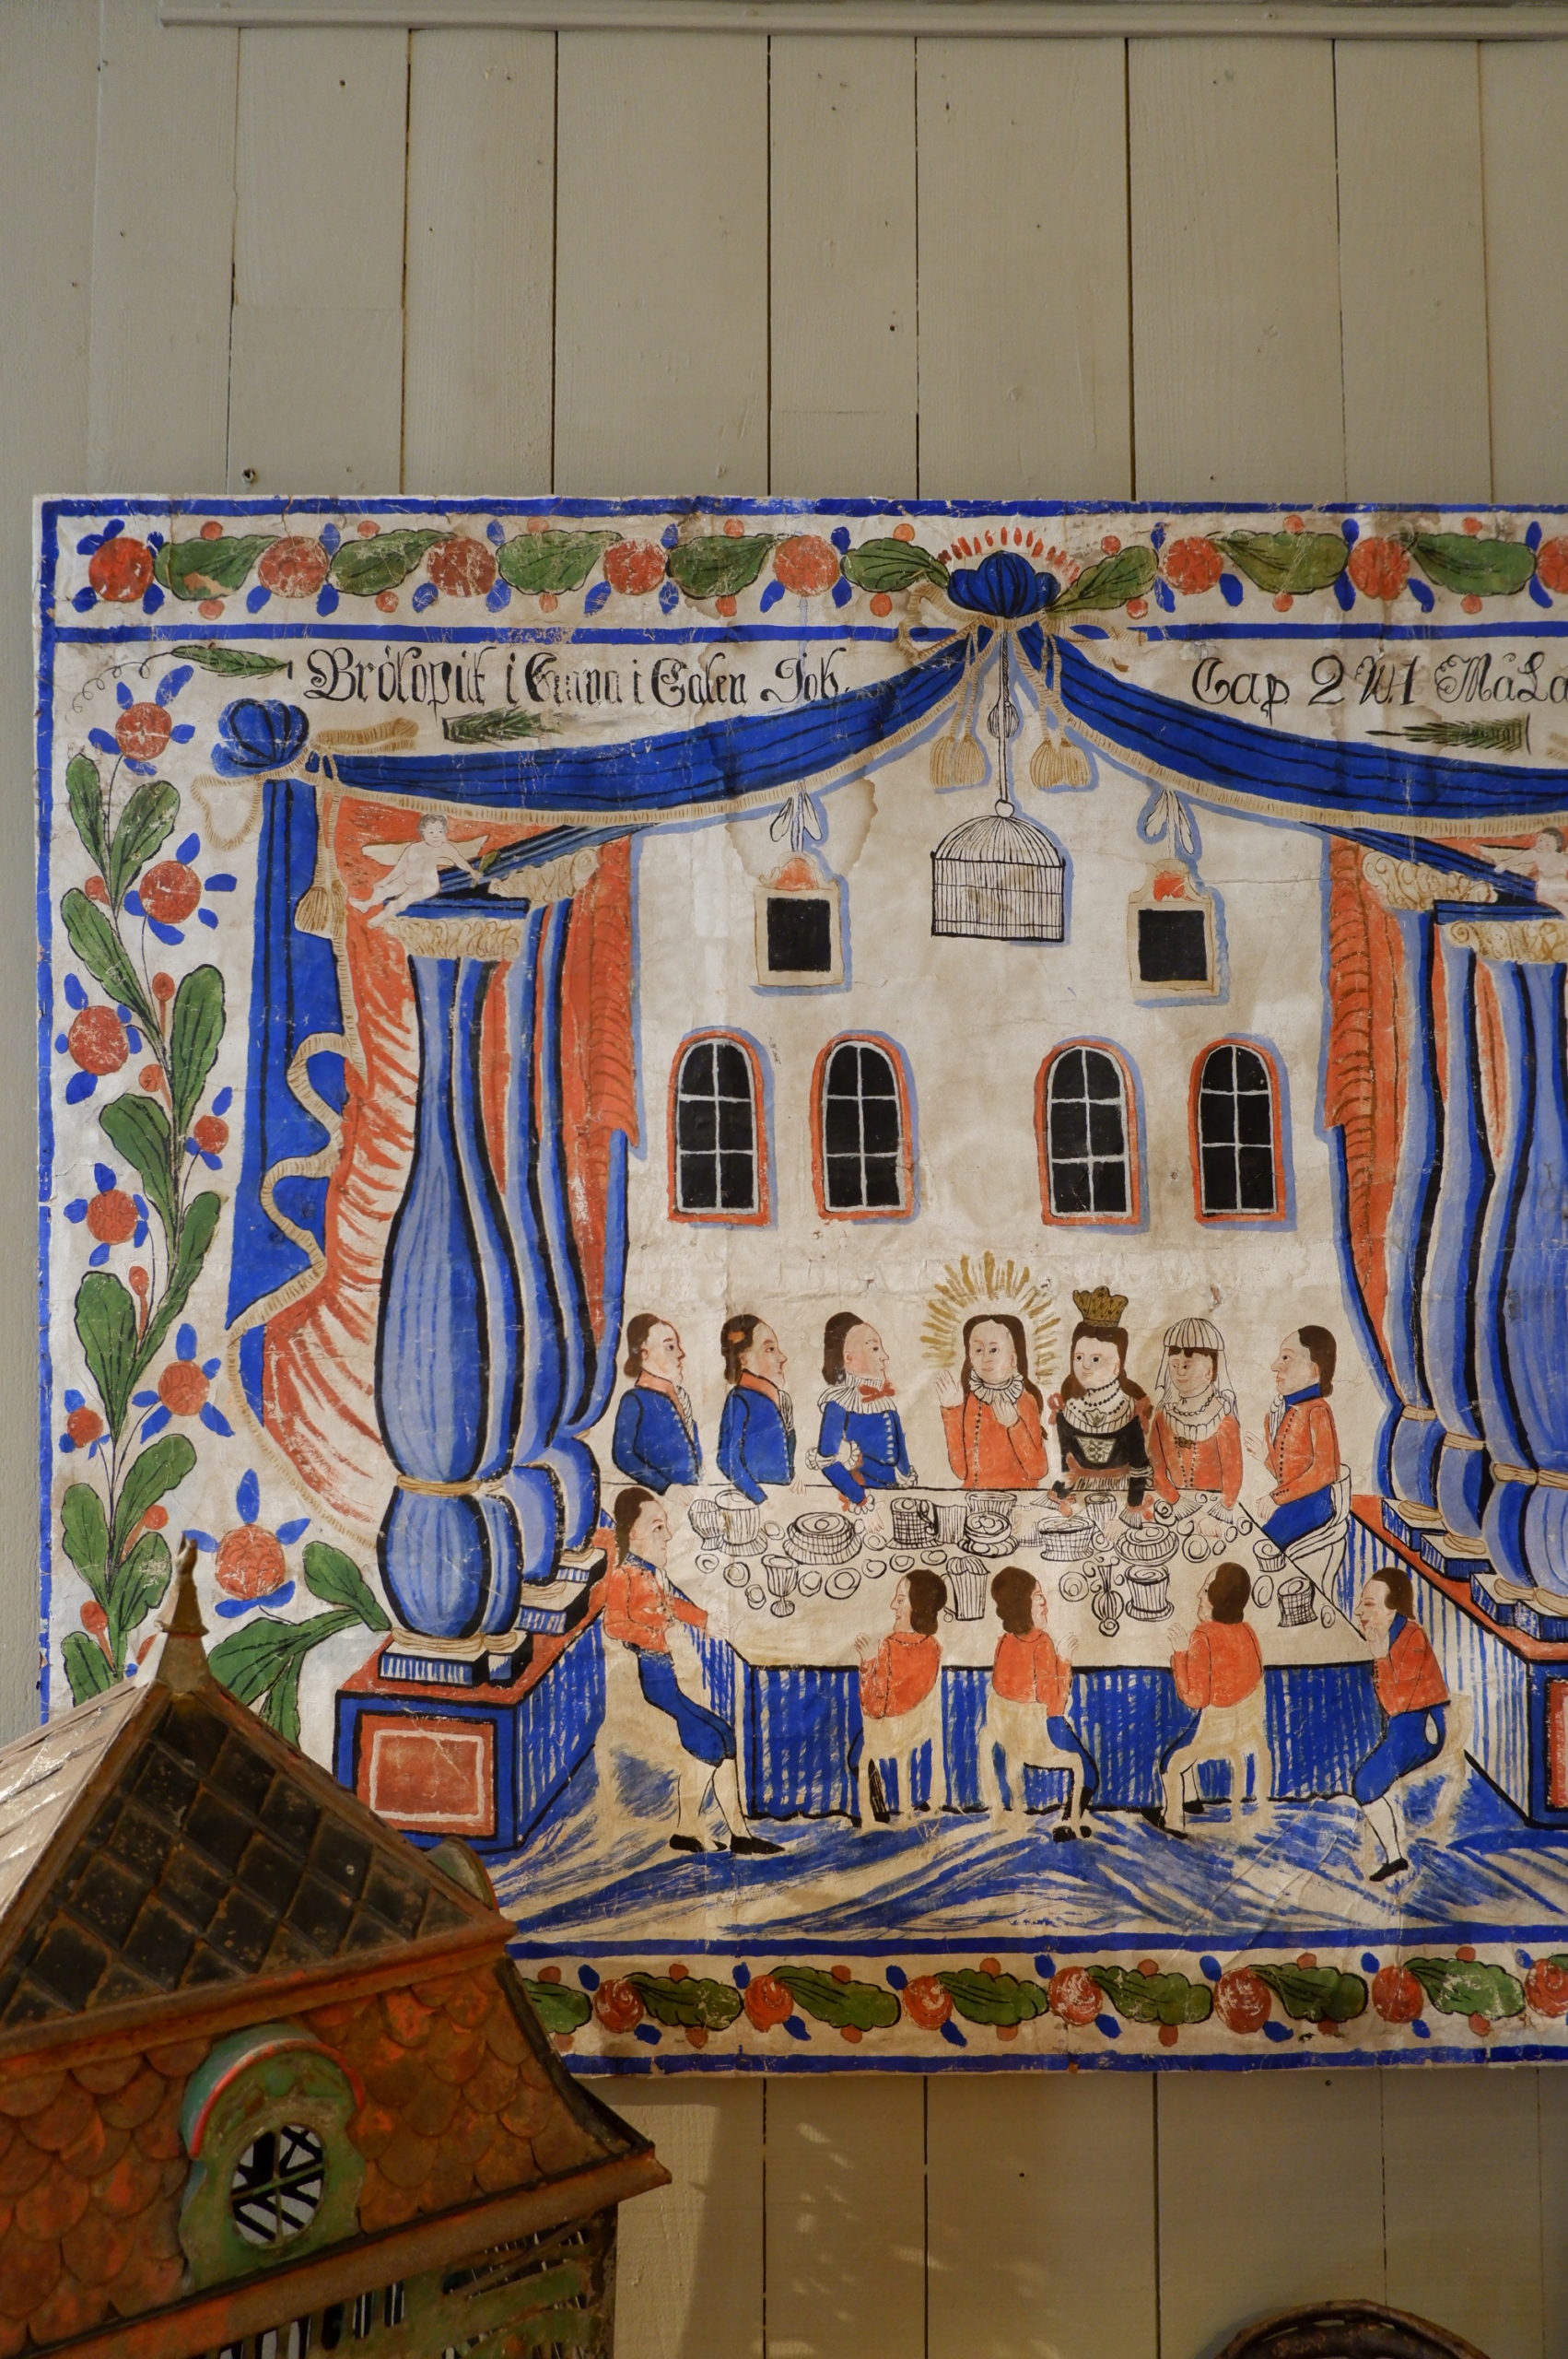 Brölopit i Cana i Galen Joh. Cap 2 W1 MåLa